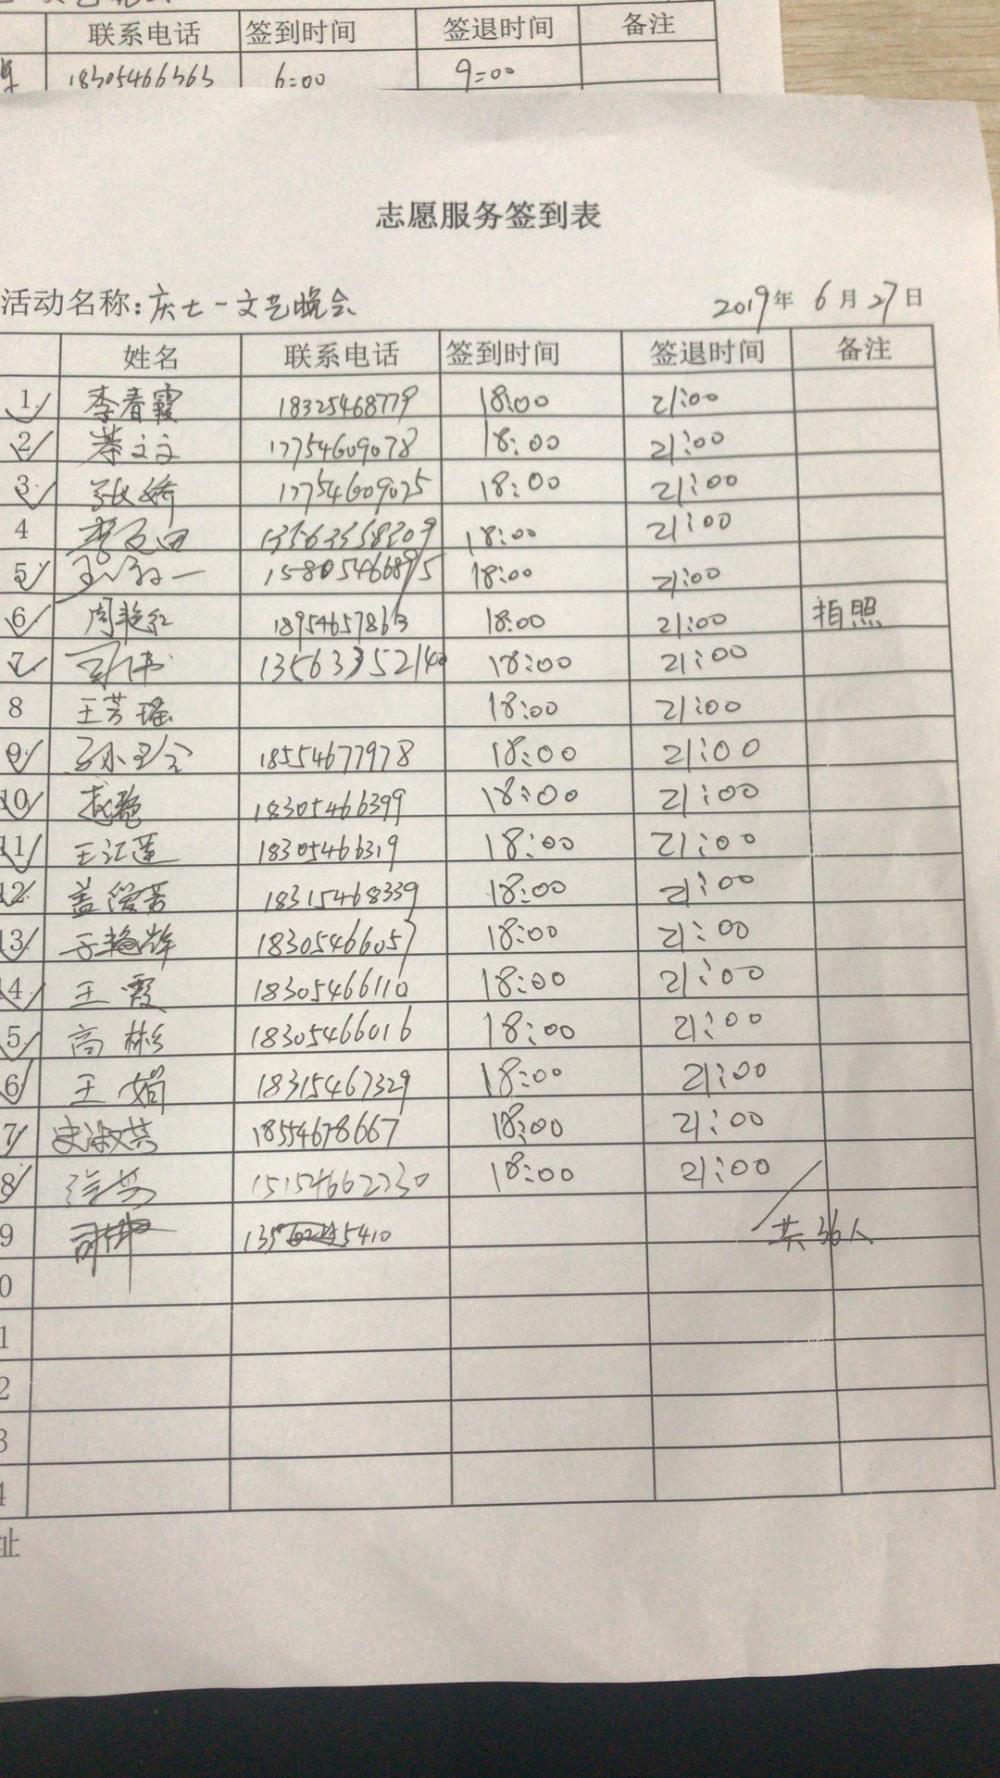 联系电话 签到时间 签退时间 备注
18305466363 6:00 9:00
志愿服务签到表
活动名称:庆七一文艺晚会 2019年 6月27日
姓名 联系电话 签到时间 签退时间 备注
1 李春霞 18325468779 18:00 21:00
2 蔡文文 17754609078 18:00 21:00
3 张娇 17754609025 18:00 21:00
4 13563358209 18:00 21:00
5 15805466895 18:00 21:00
6 周艳红 18954657863 18:00 21:00 拍照
7 18:00 21:00
8 王芳瑶 18:00 21:00
9 18554677978 18:00 21:00
10 赵艳 18305466399 18:00 21:00
11 王江莲 18305466319 18:00 21:00
12 盖俊芳 18315468339 18:00 21:00
13 于艳辉 18305466057 18:00 21:00
14 王霞 18305466110 18:00 21:00
5 高彬 18305466016 18:00 21:00
6 王娟 18315467329 18:00 21:00
7 史淑英 18554678667 18:00 21:00
8 15154662230 18:00 21:00
9 共36人
0
1
2
3
4
址